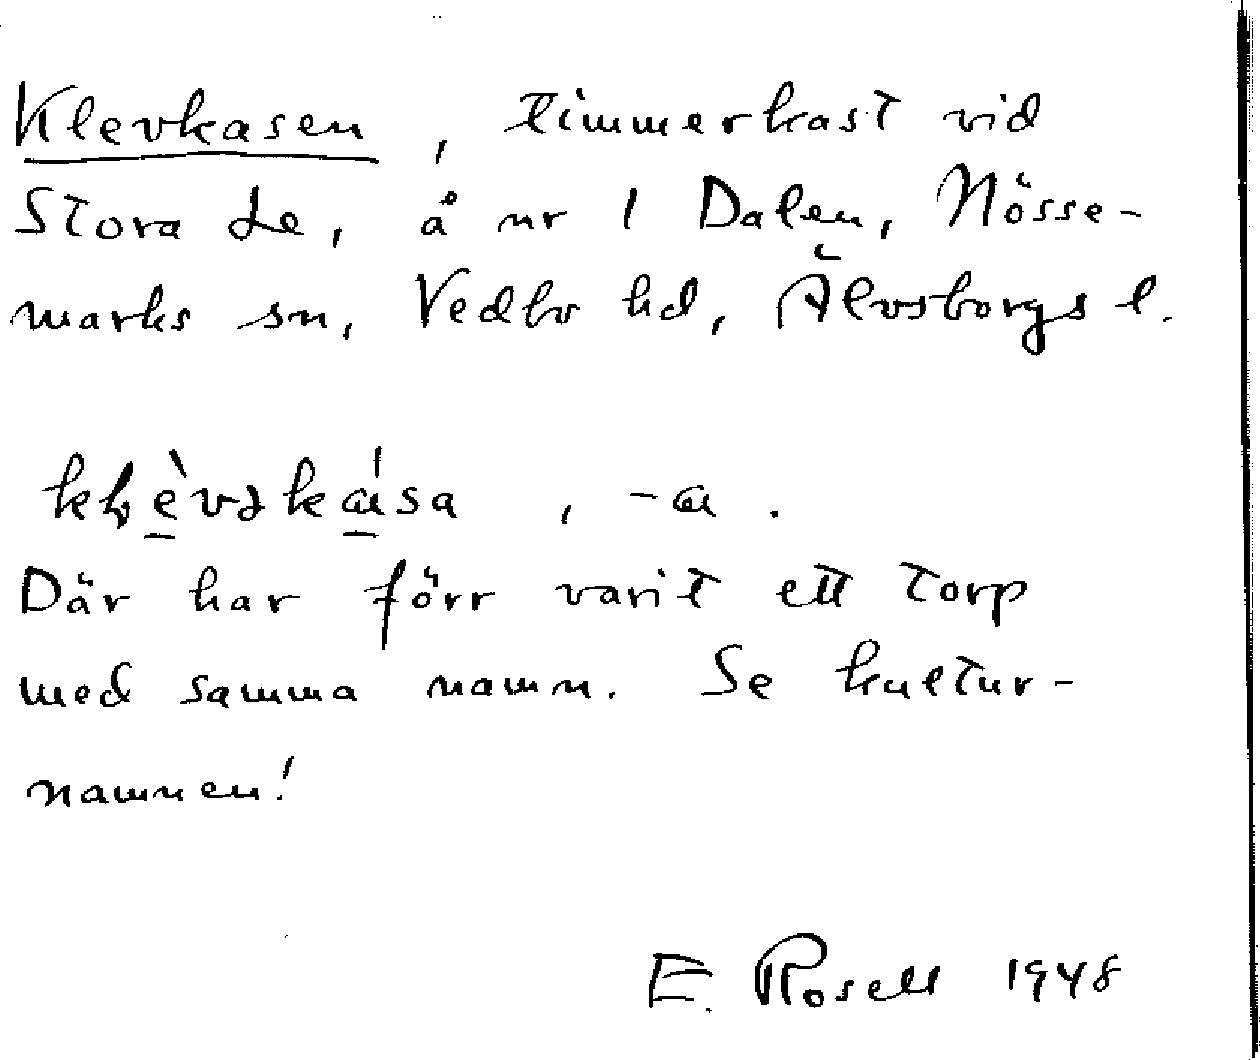 Klevkasen, timmerkast vid
Stora Le, å nr 1 Dalen, Nösse-
marks sn, Vedbo hd, Älvsborgs l.
, -a.
Där har förr varit ett torp
med samma namn. Se kultur-
namnen!
E. Rosell 1948